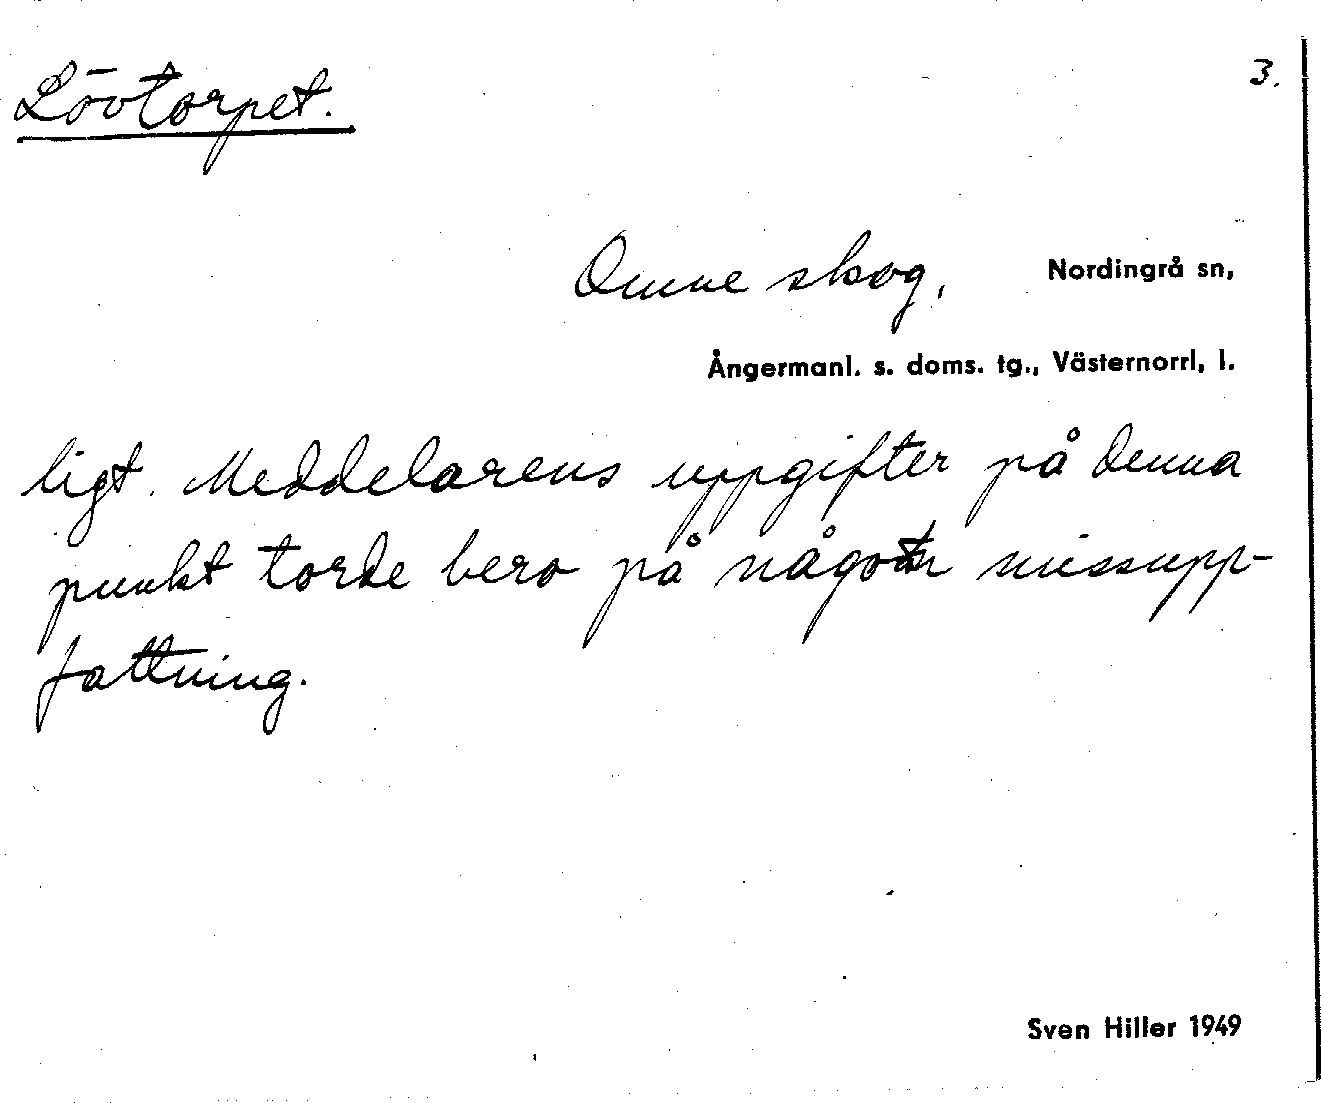 Lövtorpet.
3.
Omne skog, Nordingrå sn,
Ångermanl. s. doms. tg., Västernorrl, l.
ligt. Meddelarens uppgifter på denna
punkt torde bero på någon missupp-
fattning.
Sven Hiller 1949